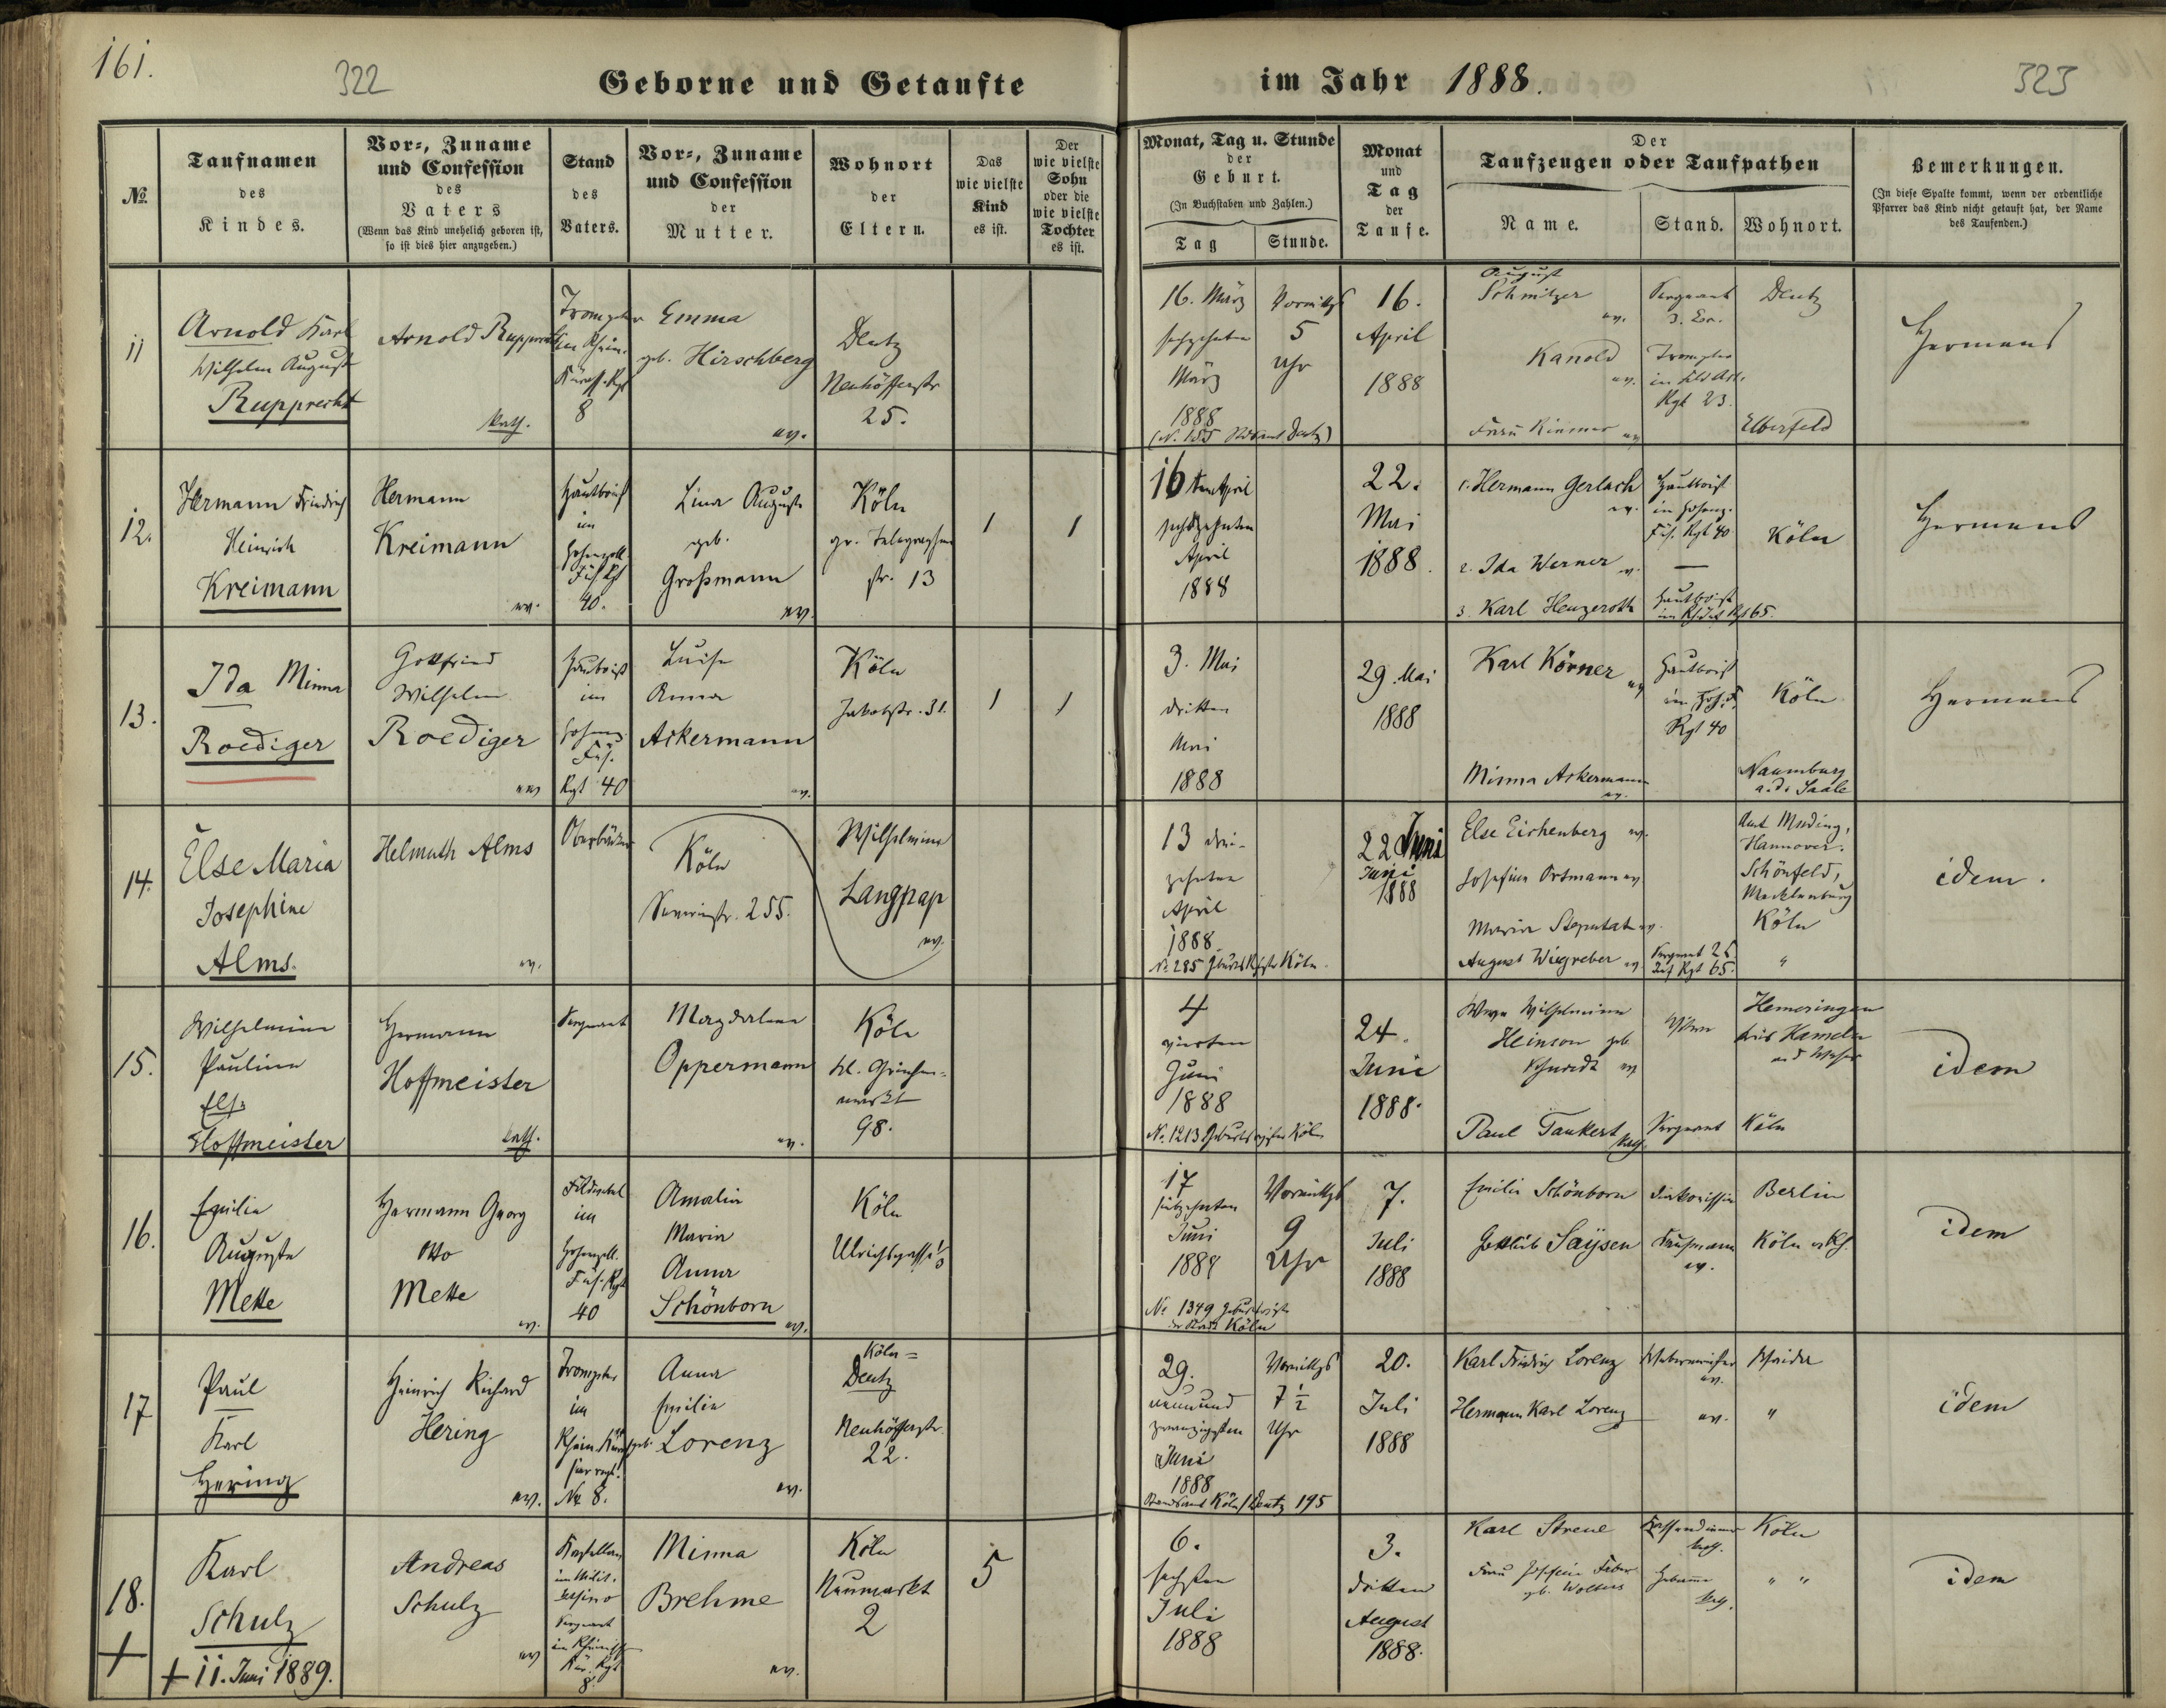 161.
322
Geborne und Getaufte
im Jahr 1888.
323
№
Taufnamen
des
Kindes.
Vor-, Zuname
und Confession
des
Vaters
(Wenn das Kind unehelich geboren ist,
so ist dies hier anzugeben.)
Stand
des
Vaters.
Vor-, Zuname
und Confession
der
Mutter.
Wohnort
der
Eltern.
Das
wie vielste
Kind
es ist.
Der
wie vielste
Sohn
oder die
wie vielste
Tochter
es ist.
Monat, Tag u. Stunde
der
Geburt.
(In Buchstaben und Zahlen.)
Tag
Stunde.
Monat
und
Tag
der
Taufe.
Der
Taufzeugen oder Taufpathen
Name.
Stand.
Wohnort.
Bemerkungen.
(In diese Spalte kommt, wenn der ordentliche
Pfarrer das Kind nicht getauft hat, der Name
des Taufenden.)
11
Arnold Karl
Wilhelm August
Rupprecht
Arnold Rupprecht
kath.
Trompeter
im Rhein.
Kürass. Rgt
8
Emma
geb. Hirschberg
ev.
Deutz
Neuhöfferstr
25.
16. März
sechzehnten
März
1888
Vormittgs
5
Uhr
16.
April
1888
August
Schnitzer
ev.
Sergeant
Deutz
Kanold
ev.
Trompeter
in Feld Art.
Rgt 23.
Frau
ev
Elberfeld
Hermens
12.
Hermann Friedrich
Heinrich
Kreimann
Hermann
Kreimann
ev.
Hautboist
im
Hohenzoll.
Füs Rgt
40.
Lina Auguste
geb.
Großmann
ev.
Köln
gr. Telegraphen
str. 13
1
1
16 ten April
sechszehnten
April
1888
22.
Mai
1888.
1. Hermann Gerlach
ev.
Hautboist
im Hohenz.
Füs. Rgt 40
Köln
2. Ida Werner ev.
—
3. Karl Henzeroth
Hautboist
65.
Hermens
13.
Ida Minna
Roediger
Gottfried
Wilhelm
Roediger
ev
Hautboist
im
Hohenz.
Füs.
Rgt 40
Luise
Anna
Ackermann
ev.
Köln
Jakobstr. 31.
1
1
3. Mai
dritten
Mai
1888
29. Mai
1888
Karl Körner
ev
Hautboist
im Hoh. F.
Rgt 40
Köln
Minna Ackermann
ev.
Naumburg
a. d. Saale
Hermens
14.
Else Maria
Josephine
Alms.
Helmuth Alms
ev.
Köln
Severinstr. 255.
Wilhelmine
Langpap
ev.
13 drei-
zehnten
April
1888.
No. 285 Köln.
22 Juni
Juni
1888
Else Eichenberg ev.
Hannover.
Josefine Ortmann ev.
Schönfeld,
Mecklenburg
Maria Steputat ev.
Köln
August Wiegreber ev.
Sergeant
Inf Rgt 65.
"
idem.
15.
Wilhelmine
Pauline
Else
Hoffmeister
Hermann
Hoffmeister
kath.
Sergeant
Magdalena
Oppermann
ev.
Köln
kl. Griechen-
markt
98.
4
vierten
Juni
1888
No. 1213 Geburtsregister Köln
24.
Juni
1888.
Wwe Wilhelmine
Heinson geb.
Schmidt ev
Witwe
Hemeringen
Kreis Hameln
a. d. Weser
Paul Tankert kath.
Sergeant
Köln
idem
16.
Emilie
Auguste
Mette
Hermann Georg
Otto
Mette
ev.
Feldwebel
im
Hohenzoll.
Füs. Rgt
40
Amalie
Maria
Anna
Schönborn
ev.
Köln
Ulrichsgasse
17
siebzehnten
Juni
1888
Vormittgs
9
Uhr
No 1349 Geburtsregister
der Stadt Köln
7.
Juli
1888
Emilie Schönborn
Diakonissin
Berlin
Gottlieb Saysen
Kaufmann
ev.
Köln a/Rh.
idem
17
Paul
Karl
Hering
Heinrich Richard
Hering
ev.
Trompeter
im
Rhein. Küras
sier regt.
No. 8.
Anna
Emilie
geb. Lorenz
ev.
Köln =
Deutz
Neuhöfferstr.
22.
29.
neunund
zwanzigsten
Juni
1888
Vormittgs
7 ½
Uhr
Standesamt Köln/Deutz 195
20.
Juli
1888
Karl Friedrich Lorenz
Webermeister
ev.
Rheidt
Hermann Karl Lorenz
ev.
"
idem
18.
+
Karl
Schulz
+ 11. Juni 1889.
Andreas
Schulz
ev
Kastellan
im Milit.
casino
Sergeant
im Rheinisch
Kür. Rgt
8.
Minna
Brehme
ev.
Köln
Neumarkt
2
5
6.
sechsten
Juli
1888
3.
dritten
August
1888.
Karl Streue
Kassendiener
kath.
Köln
Frau Josefine Faber
geb. Wolters
Hebamme
kath.
" "
idem